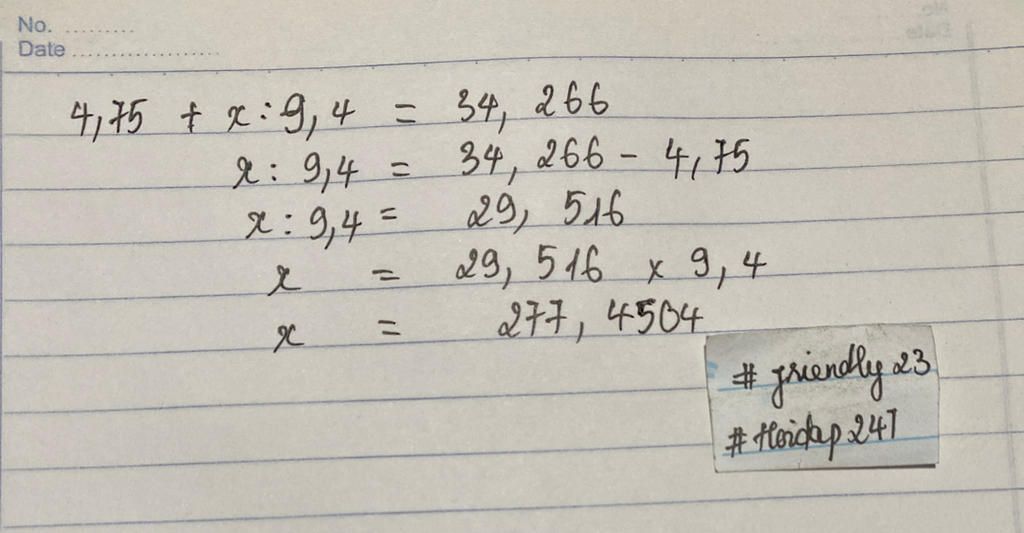 No. .........
Date ...................
4,75 + x : 9,4 = 34, 266
x : 9,4 = 34, 266 - 4,75
x : 9,4 = 29, 516
x = 29, 516 x 9, 4
x = 277, 4504
# friendly 23
# Hoidap 247